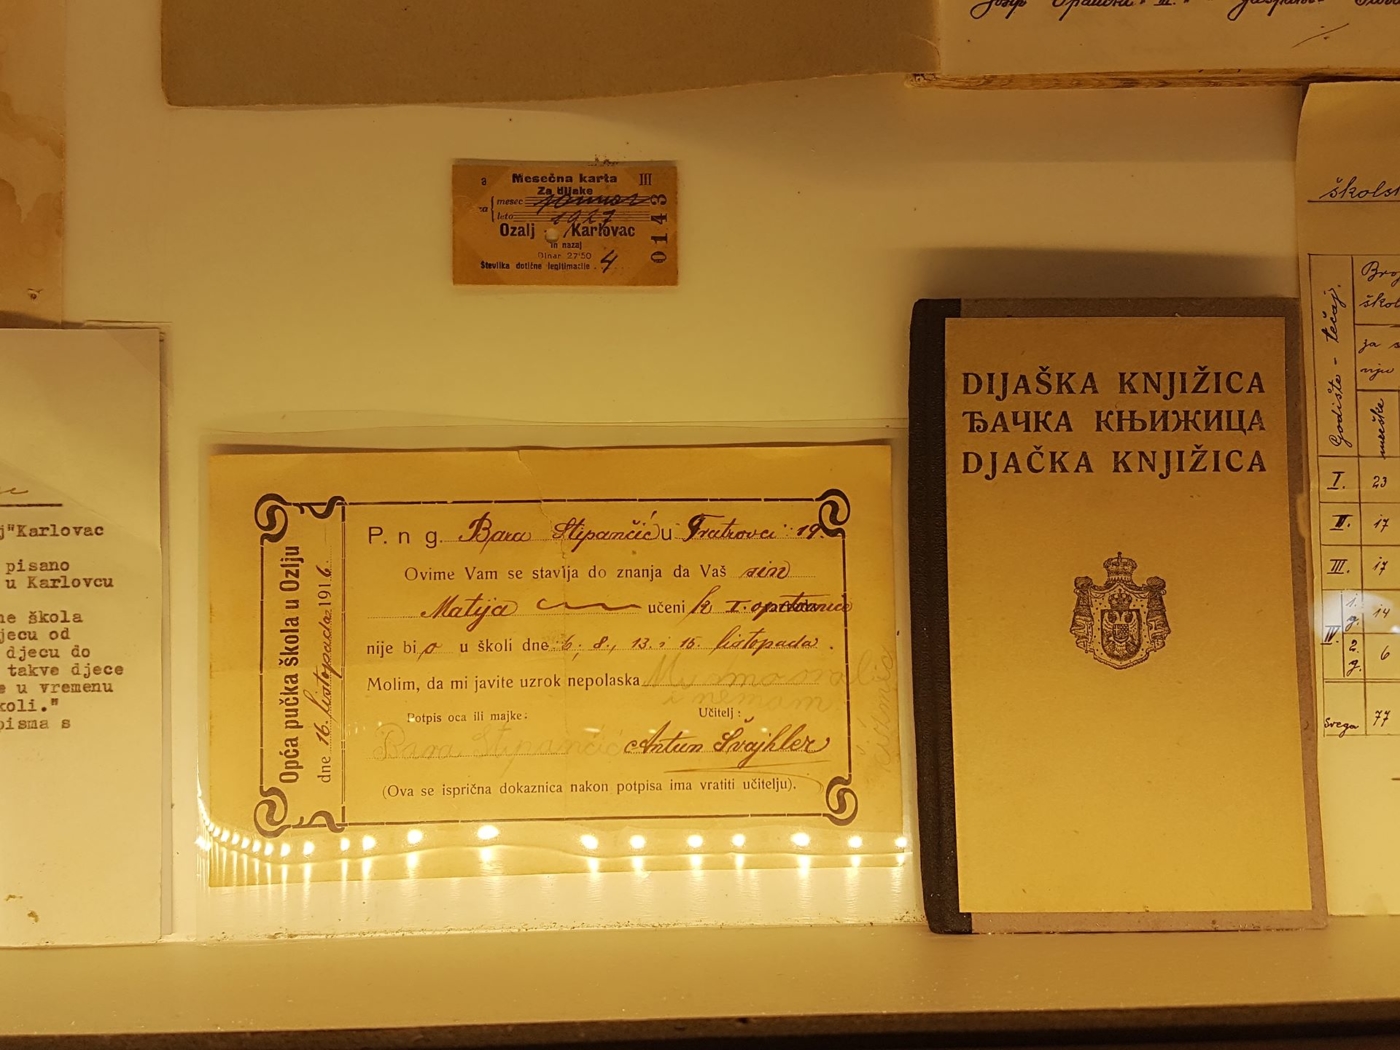 a Mesečna karta III
Za dijake
mesec januar
leto 1927
Ozalj Karlovac
in nazaj
Dinar. 27'50
Številka dotične legitimacije . 4
0143
DIJAŠKA KNJIŽICA
ЂАЧКА КЊИЖИЦА
DJAČKA KNJIŽICA
Opća pučka škola u Ozlju
dne 16. listopada 1916.
P. n g. Bara Stipančić u Tratrovci 19.
Ovime Vam se stavlja do znanja da Vaš sin
Matija učeni k I.
nije bi o u školi dne 6., 8., 13. i 15. listopada .
Molim, da mi javite uzrok nepolaska
Potpis oca ili majke: Učitelj:
Bara Stipančić Antun Švajhler
(Ova se isprična dokaznica nakon potpisa ima vratiti učitelju).
j"Karlovac
pisano
u Karlovcu
ne škola
jecu od
djecu do
takve djece
e u vremenu
koli."
pisma s
školsk
Godište - tečaj.
Broj
škol
za s
nju
muške
I. 23
II. 17
III. 17
IV. 1. g. 14
2. g. 6
Svega 77